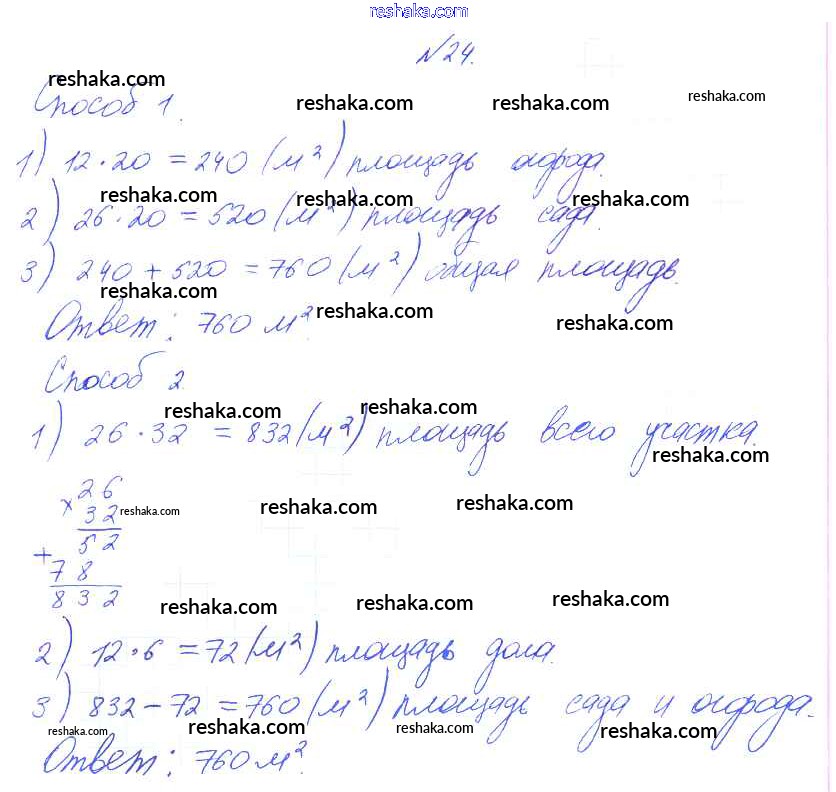 reshaka.com
№24.
reshaka.com
Способ 1.
reshaka.com reshaka.com reshaka.com
1) 12·20 = 240 (м²) площадь огорода.
reshaka.com reshaka.com reshaka.com
2) 26·20 = 520 (м²) площадь сада.
3) 240 + 520 = 760 (м²) общая площадь.
reshaka.com reshaka.com reshaka.com
Ответ: 760 м².
Способ 2.
reshaka.com reshaka.com
1) 26·32 = 832 (м²) площадь всего участка.
reshaka.com
× 26
32 reshaka.com reshaka.com reshaka.com
+ 52
78
832
reshaka.com reshaka.com reshaka.com
2) 12·6 = 72 (м²) площадь дома.
3) 832 – 72 = 760 (м²) площадь сада и огорода.
reshaka.com reshaka.com reshaka.com reshaka.com
Ответ: 760 м².